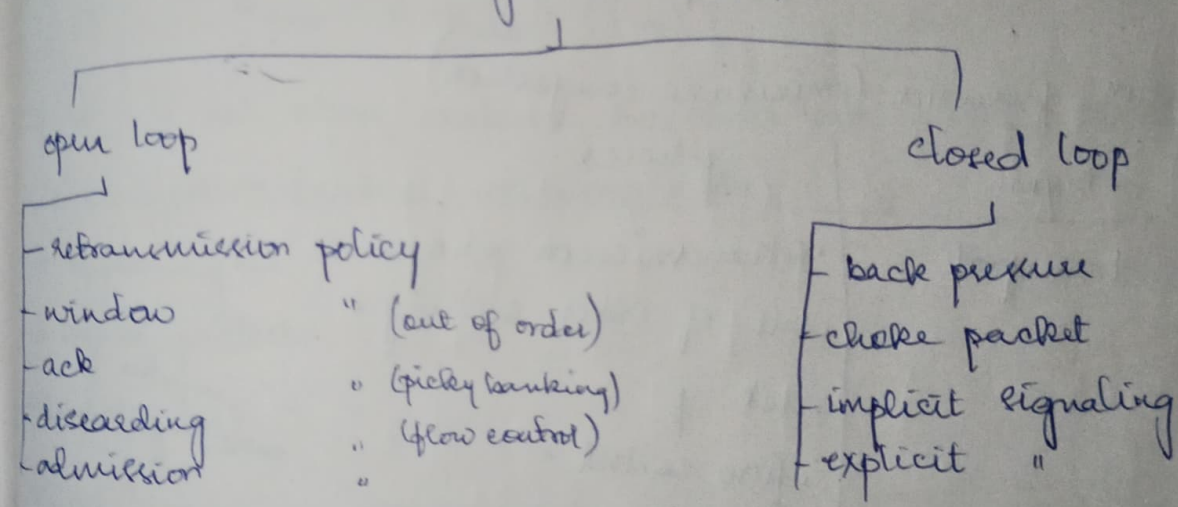 open loop
retransmission policy
window " (out of order)
ack " (picky banking)
discarding " (flow control)
admission "
closed loop
back pressure
choke packet
implicit signaling
explicit "